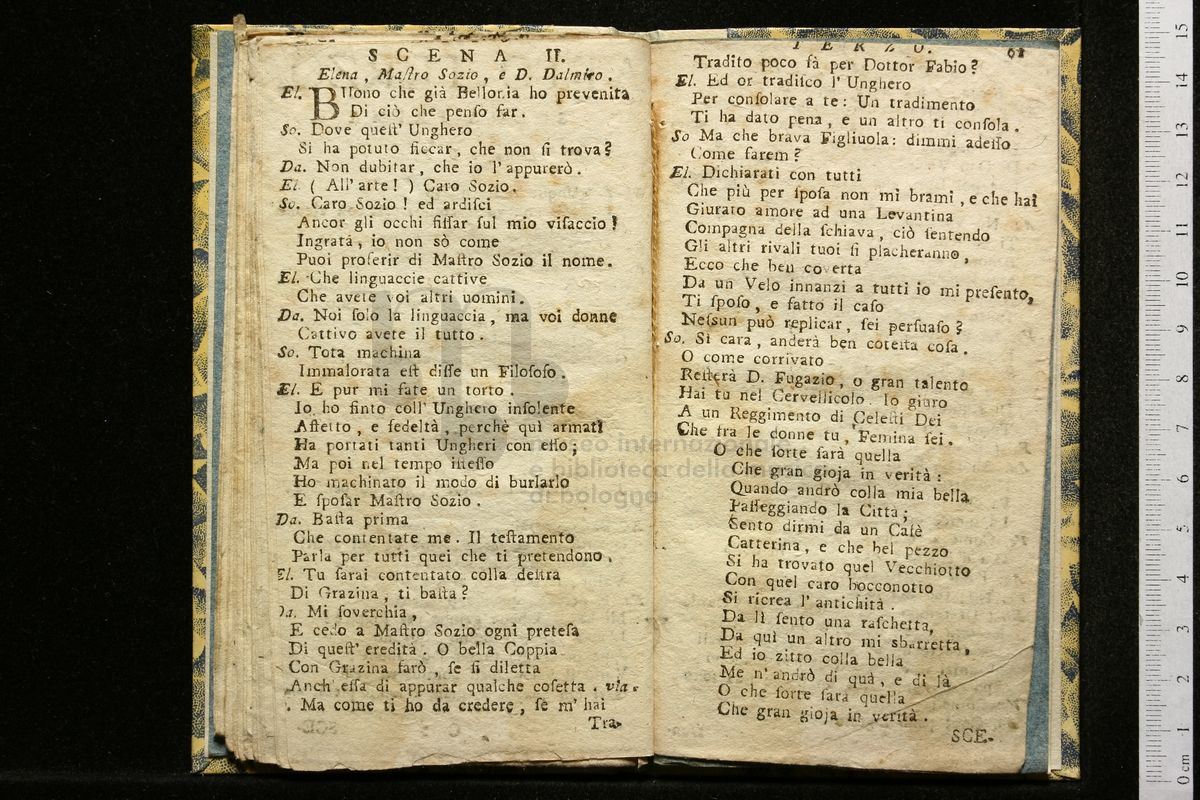 SCENA II.
Elena, Maſtro Sozio, e D. Dalmiro.
El. BUono che già Bellonia ho prevenita
Di ciò che penſo far.
So. Dove queſt' Unghero
Si ha potuto ficcar, che non ſi trova?
Da. Non dubitar, che io l'appurerò.
El. (All'arte!) Caro Sozio.
So. Caro Sozio! ed ardiſci
Ancor gli occhi fiſſar ſul mio viſaccio!
Ingrata, io non sò come
Puoi proferir di Maſtro Sozio il nome.
El. Che linguaccie cattive
Che avete voi altri uomini.
Da. Noi ſolo la linguaccia, ma voi donne
Cattivo avete il tutto.
So. Tota machina
Immalorata eſt diſſe un Filoſofo.
El. E pur mi fate un torto.
Io ho finto coll' Unghero inſolente
Affetto, e fedeltà, perchè quì armati
Ha portati tanti Ungheri con eſſo;
Ma poi nel tempo iſteſſo
Ho machinato il modo di burlarlo
E ſpoſar Maſtro Sozio.
Da. Baſta prima
Che contentate me. Il teſtamento
Parla per tutti quei che ti pretendono.
El. Tu ſarai contentato colla deſtra
Di Grazina, ti baſta?
Da. Mi ſoverchia,
E cedo a Maſtro Sozio ogni preteſa
Di queſt' eredità. O bella Coppia
Con Grazina farò, ſe ſi diletta
Anch' eſſa di appurar qualche coſetta. via.
. Ma come ti ho da credere, ſe m' hai
Tra-
TERZO. 61
Tradito poco fà per Dottor Fabio?
El. Ed or tradiſco l' Unghero
Per conſolare a te: Un tradimento
Ti ha dato pena, e un altro ti conſola.
So Ma che brava Figliuola: dimmi adeſſo
Come farem?
El. Dichiarati con tutti
Che più per ſpoſa non mi brami, e che hai
Giurato amore ad una Levantina
Compagna della ſchiava, ciò ſentendo
Gli altri rivali tuoi ſi placheranno,
Ecco che ben coverta
Da un Velo innanzi a tutti io mi preſento,
Ti ſpoſo, e fatto il caſo
Neſſun può replicar, ſei perſuaſo?
So. Sì cara, anderà ben coteſta coſa.
O come corrivato
Reſterà D. Fugazio, o gran talento
Hai tu nel Cervellicolo. Io giuro
A un Reggimento di Celeſti Dei
Che fra le donne tu, Femina ſei.
O che ſorte ſarà quella
Che gran gioja in verità:
Quando andrò colla mia bella
Paſſeggiando la Città;
Sento dirmi da un Cafè
Catterina, e che bel pezzo
Si ha trovato quel Vecchiotto
Con quel caro bocconotto
Si ricrea l' antichità.
Da lì ſento una raſchetta,
Da quì un altro mi sbarretta,
Ed io zitto colla bella
Me n' andrò di quà, e di là
O che ſorte ſarà quella
Che gran gioja in verità.
SCE-
museo internazionale
e biblioteca della musica
di bologna